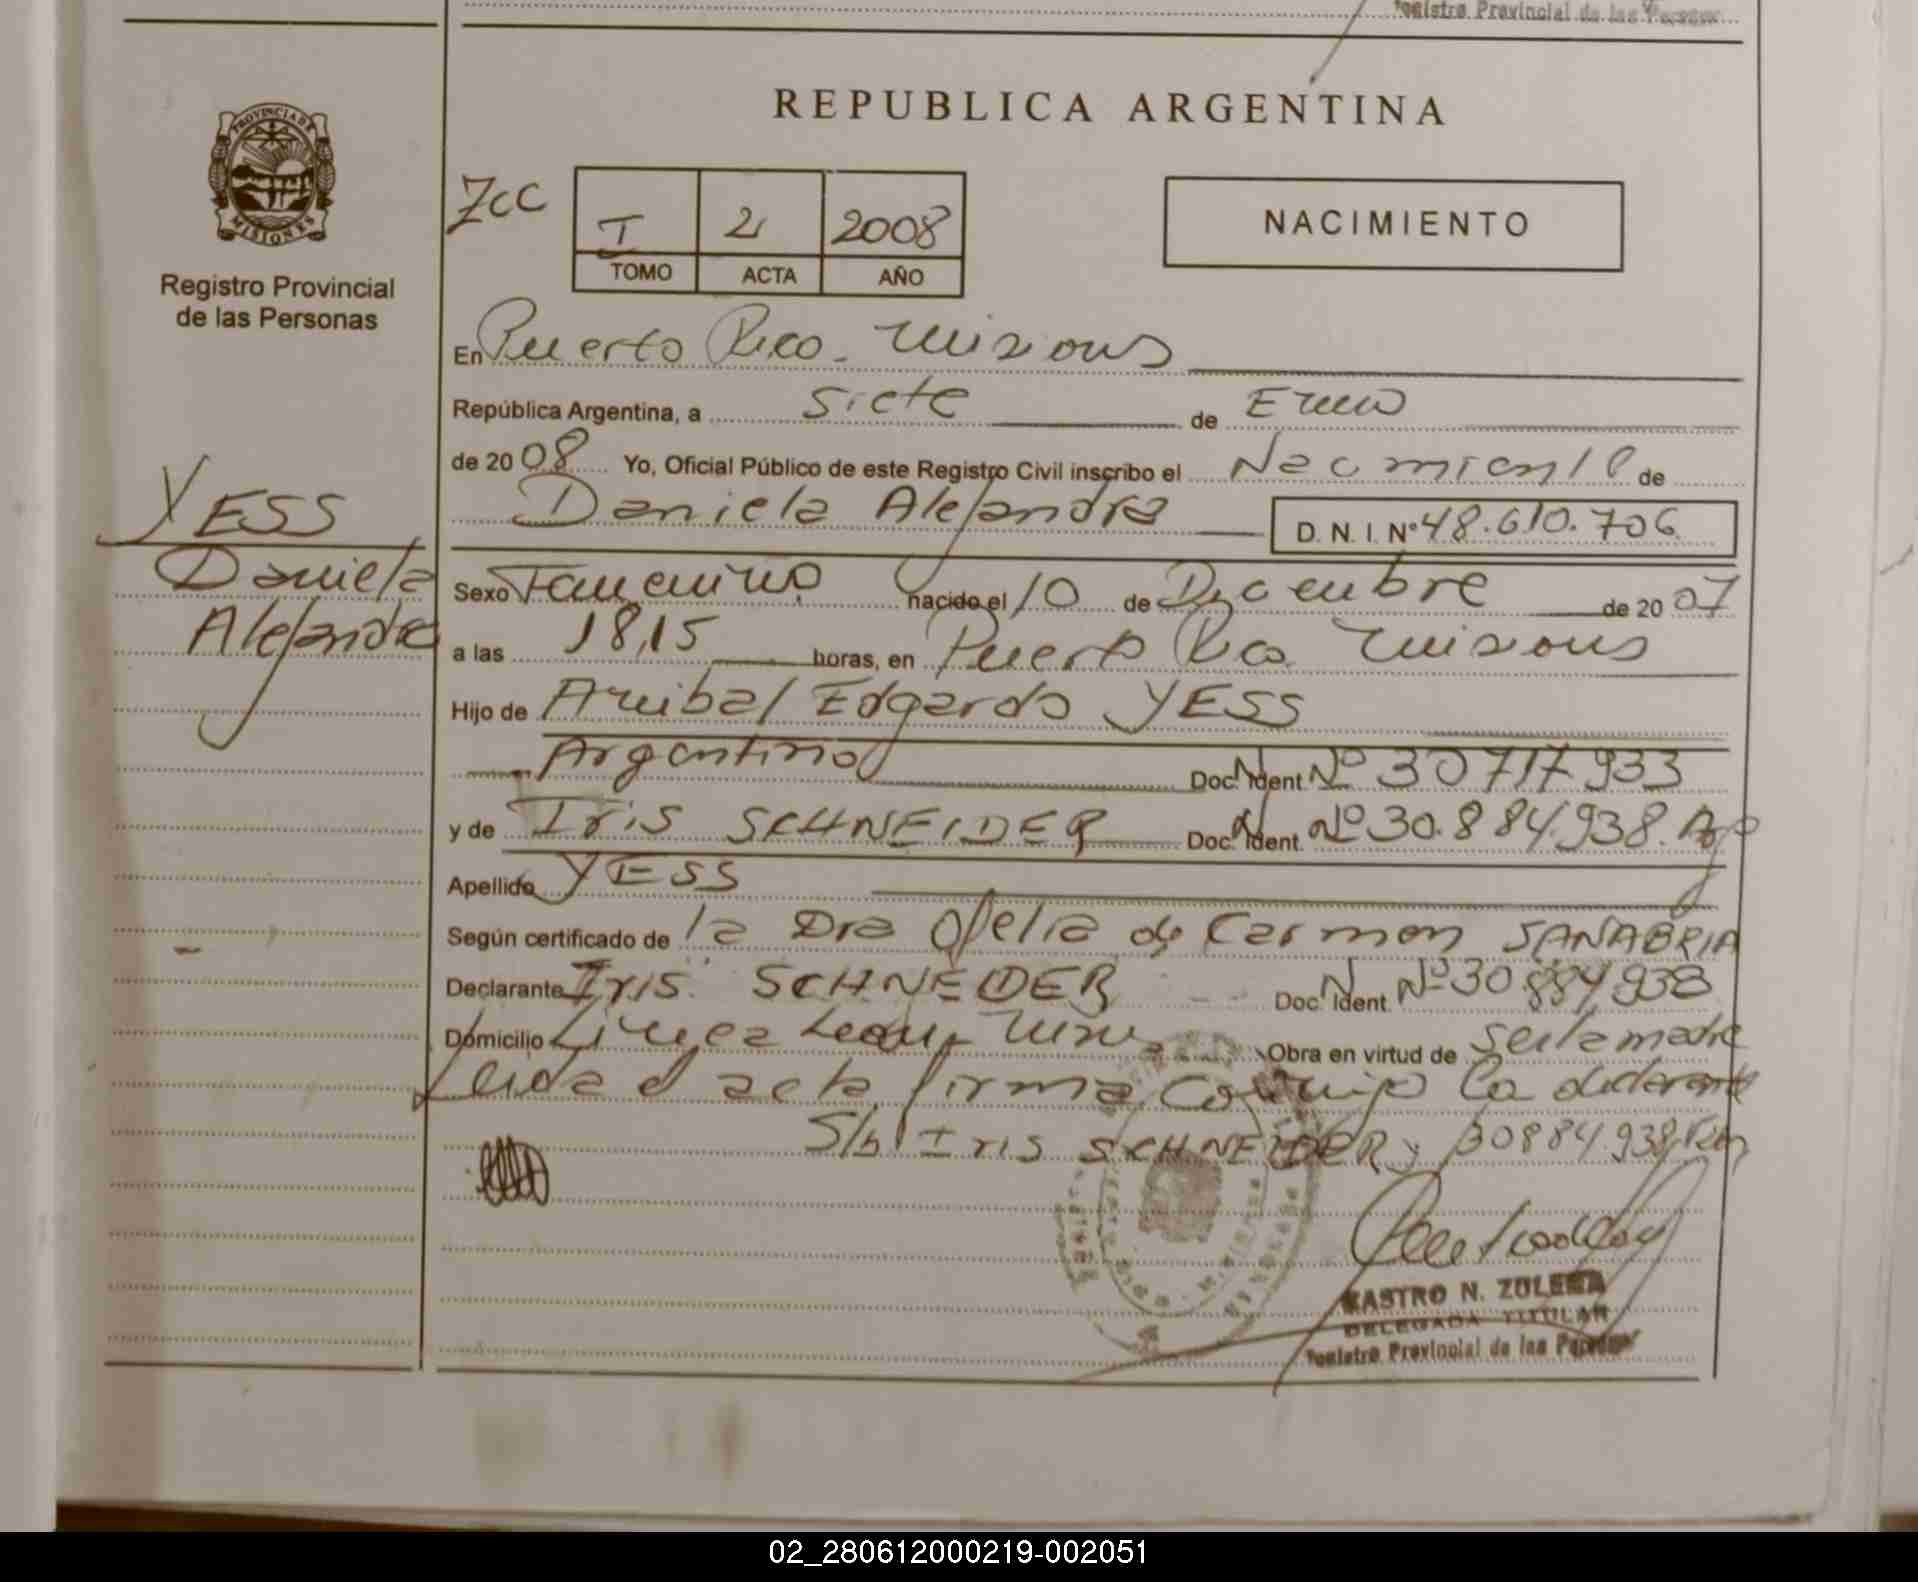 Registro Provincial de las Person
REPUBLICA ARGENTINA
PROVINCIA DE
MISIONES
Registro Provincial
de las Personas
7cc
I 2 2008
TOMO ACTA AÑO
NACIMIENTO
En Puerto Rico - Misiones
República Argentina, a siete de Enero
de 2008 Yo, Oficial Público de este Registro Civil inscribo el Nacimiento de
Daniela Alejandra D. N. I. Nº 48.610.706
YESS
Daniela
Alejandra
Sexo Femenino nacido el 10 de Diciembre de 2007
a las 18,15 horas, en Puerto Rico Misiones
Hijo de Anibal Edgardo YESS
Argentino Doc. Ident. N Nº 30717933
y de Iris SCHNEIDER Doc. Ident. N Nº 30.884.938. Arg
Apellido YESS
Según certificado de la Dra Ofelia de Carmen SANABRIA
Declarante Iris SCHNEIDER Doc. Ident. N Nº 30884938
Domicilio Linea Obra en virtud de ser la madre
Leida el acta firma conmigo la declarante
S/b/ Iris SCHNEIDER 30884.938
CASTRO N. ZULEMA
DELEGADA TITULAR
Registro Provincial de las Personas
02_280612000219-002051